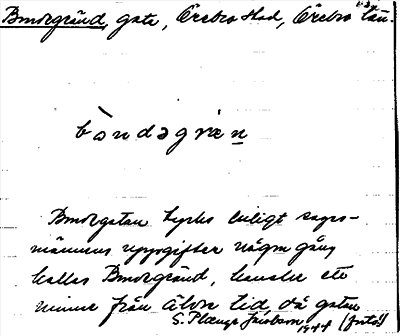 Bmorgränd, gata, Örebro stad, Örebro län.
bòndəgræn
Bmorgatan tycks enligt sages-
männens uppgifter någon gång
kallas Bmorgränd, kanske ett
minne från äldre tid då gatan
S. Plænge Jacobson
1944 (forts!)